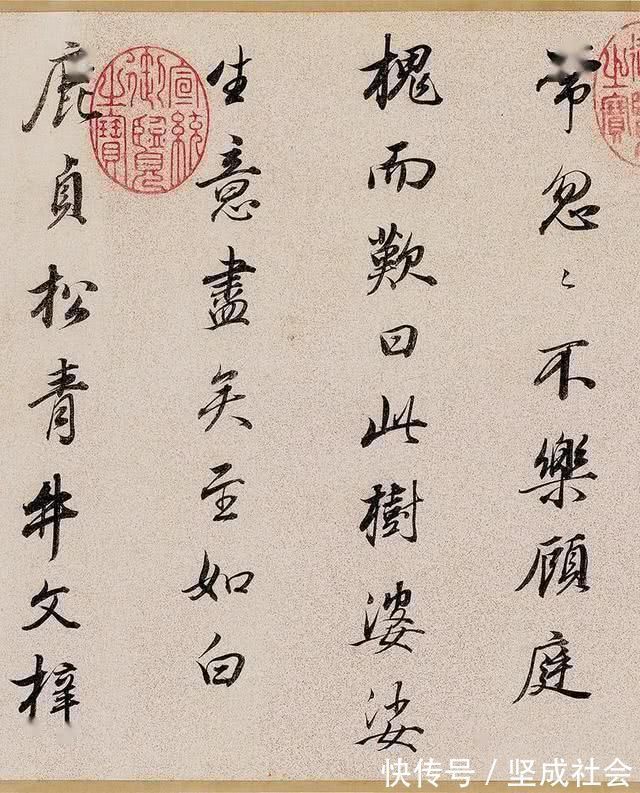 常忽〻不樂顧庭
槐而歎曰此樹婆娑
生意盡矣至如白
鹿貞松青牛文梓
宣統
御覽
之寶
之寶
快传号 / 坚成社会